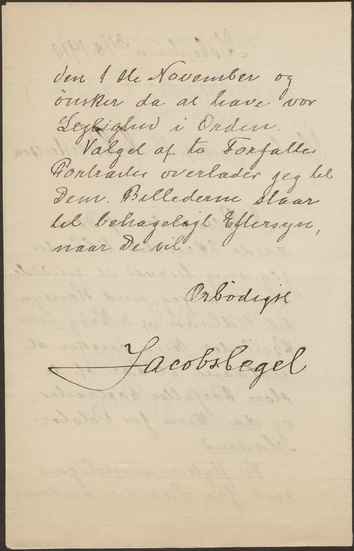 den 1ste November og
ønsker da at have vor
Lejlighed i Orden.
Valget af to Forfatter
Portræter overlader jeg til
Dem. Billederne staar
til behageligt Eftersyn,
naar De vil.
Ærbødigst